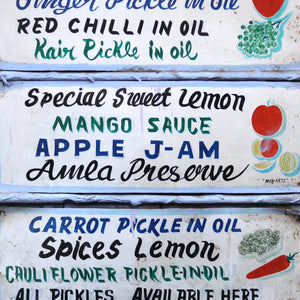 Ginger Pickle in oil
RED CHILLI IN OIL
Kair Pickle in oil
Special Sweet Lemon
MANGO SAUCE
APPLE J-AM
Amla Preserve
CARROT PICKLE IN OIL
Spices Lemon
CAULIFLOWER PICKLE-IN-OIL
ALL PICKLES AVAILABLE HERE